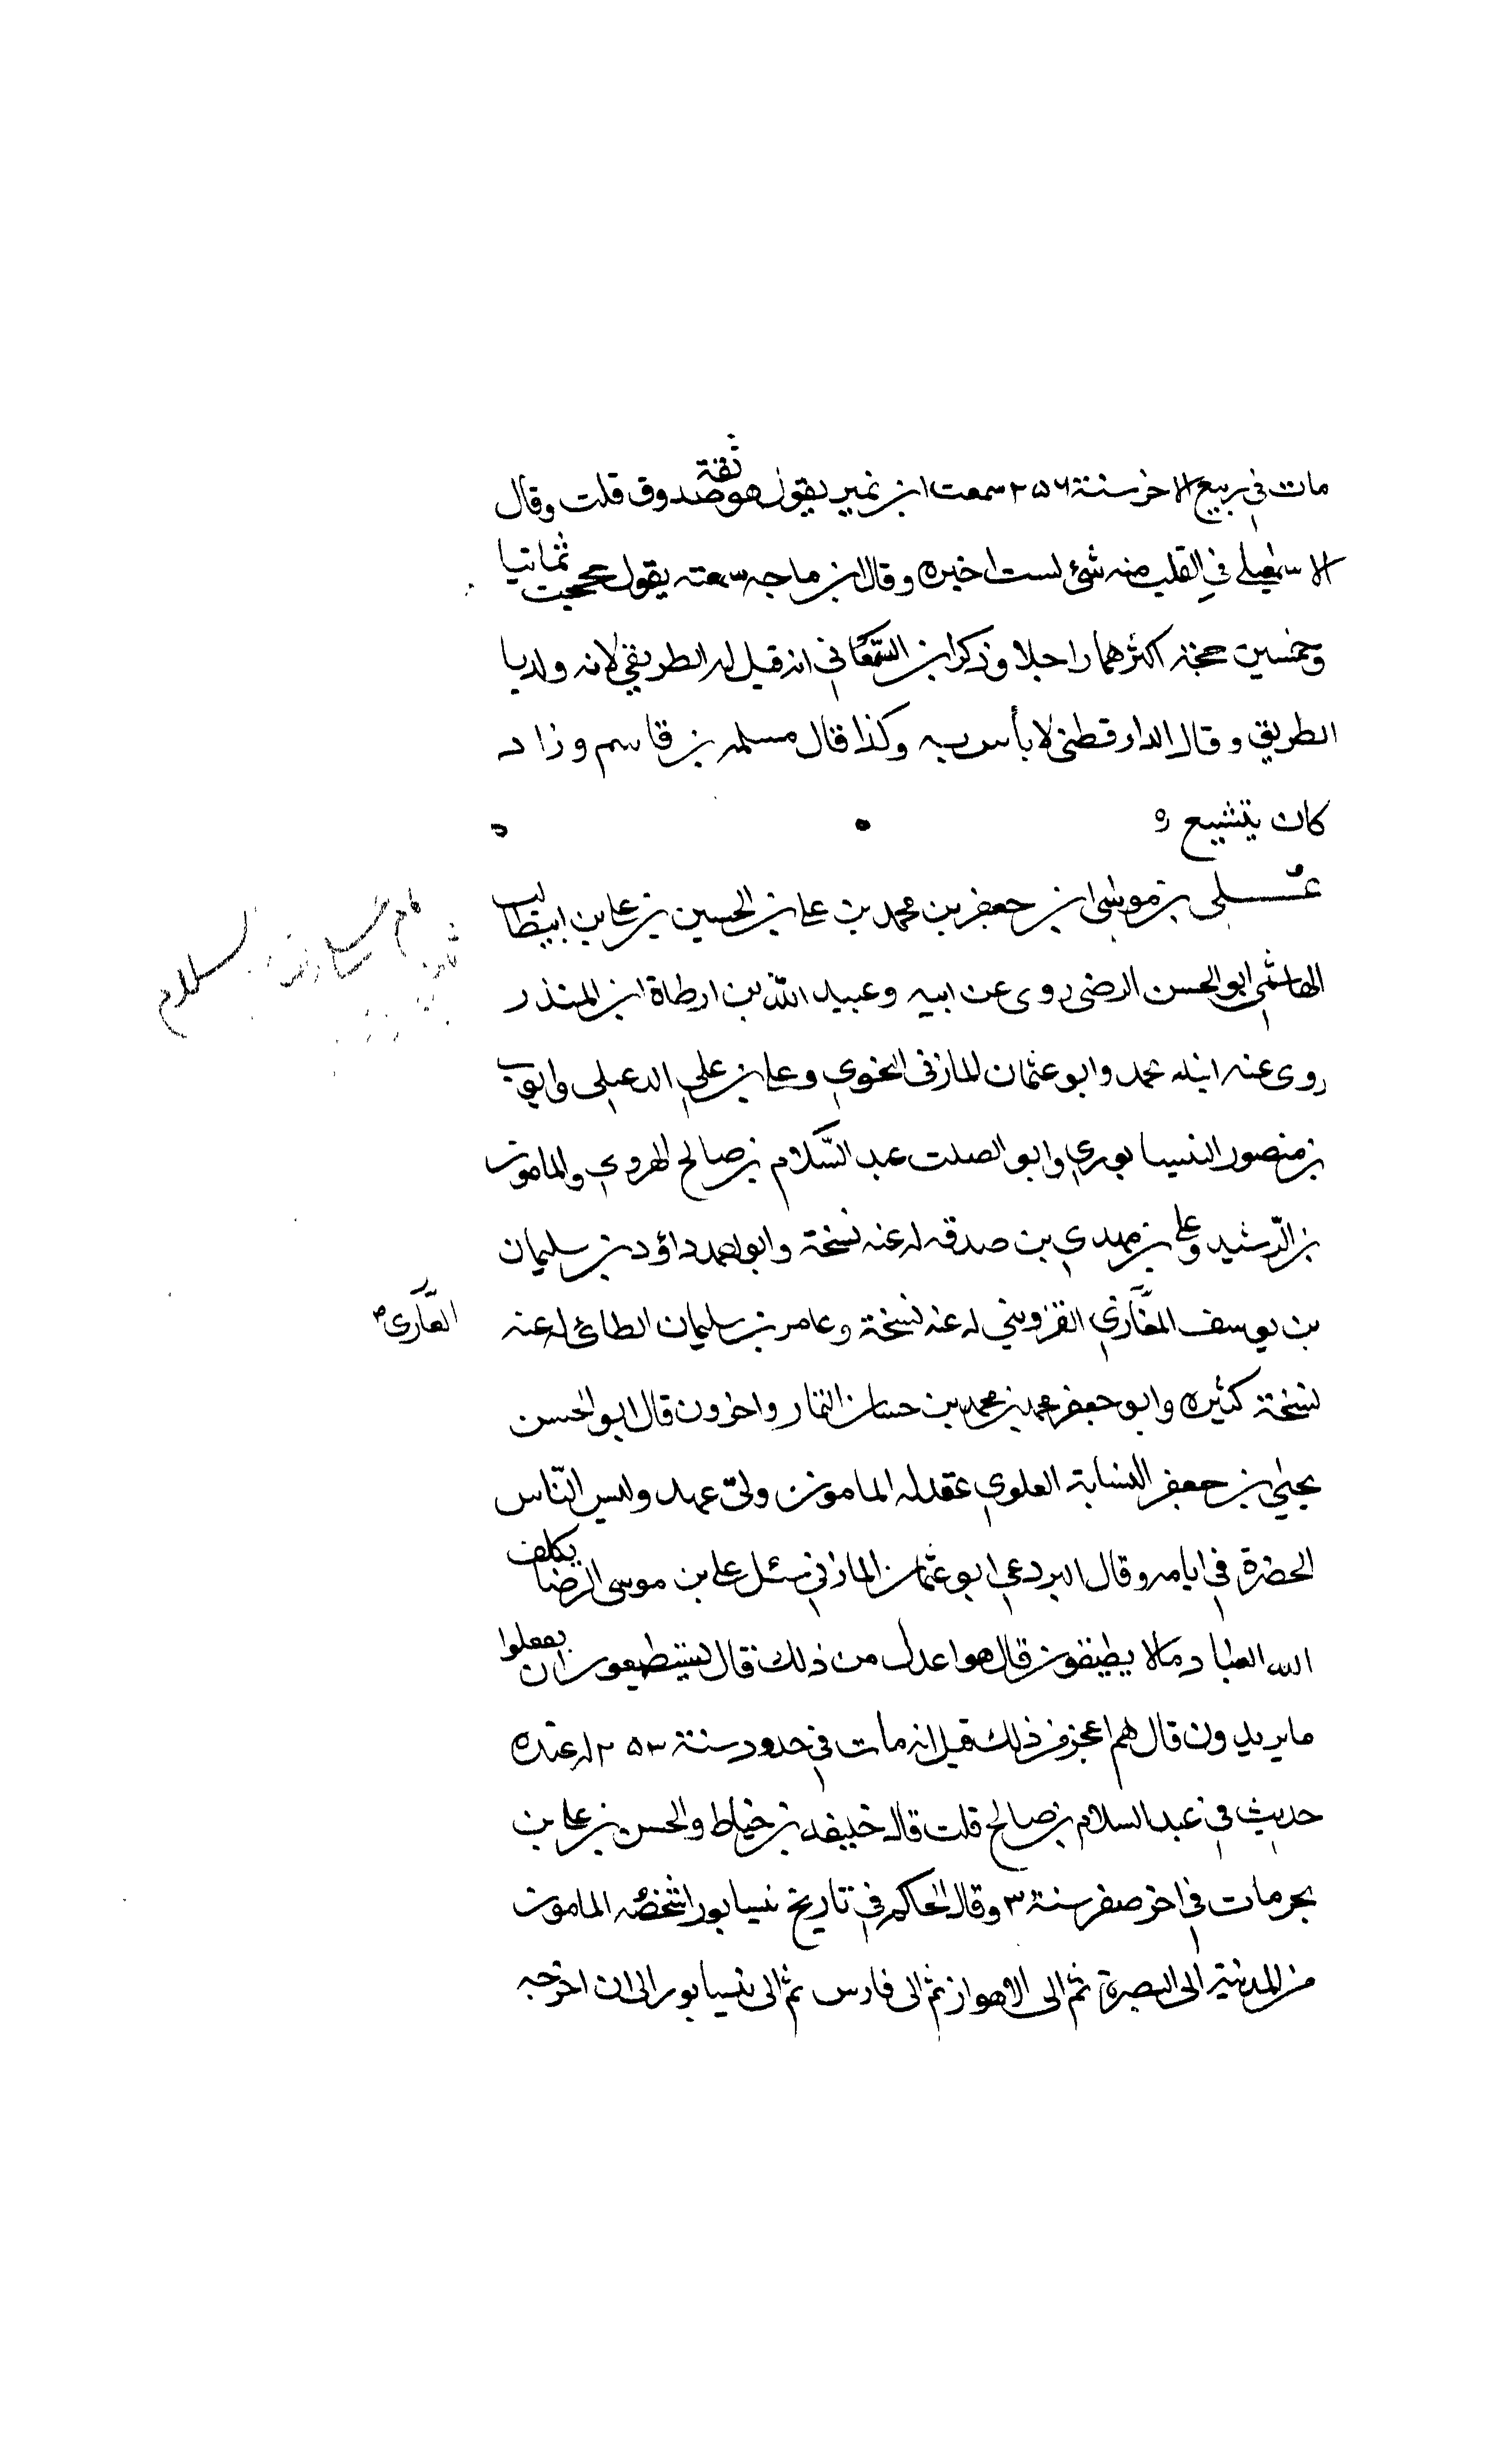 مات في ربيع الاخر سنة ٢٥٦ سمعت ابن نمير يقول هو ثقة صدوق قلت وقال
الاسمعيلي في القلب منه شئ لست اخبره وقال ابن ماجه سمعته يقول حججت ثمانيا
وخمسين حجة اكثرهما راجلا وذكر ابن السمعاني انه قيل له الطريقي لانه ولد بـا
الطريق وقال الدارقطني لا بأس به وكذا قال مسلمه بن قاسم وزاد
كان يتشيع ه
علي بن موسى ابن جعفر بن محمد بن علي بن الحسين بن علي بن ابيطالب
الهاشمي ابو الحسن الرضى روى عن ابيه وعبيد الله بن ارطاة ابن المنذر
روى عنه ابنه محمد وابو عثمان المازني النحوي وعلي بن علي الدعبلي وايوب
بن منصور النيسابوري وابو الصلت عبد السّلام بن صالح الهروي والمامون
بن الرّشيد وعلي بن مهدي بن صدقه له عنه نسخة وابو احمد داؤد بن سليمان
بن يوسف المغّازي القزويني له عنه نسخة وعامر بن سليمان الطائى له عنه
القّاري
نسخة كثيره وابو جعفر محمد بن محمد بن حسان التمار واخرون قال ابو الحسن
يحيى بن جعفر النسابة العلوي عقد له المامون ولىّ عهد ولبس النّاس
الخضرة في ايامه وقال البردعي ابو عثمان المازني سئل علي بن موسى الرضا يكلف
الله العباد مالا يطيقون قال هو اعدل من ذلك قال يستطيعون ان يفعلوا
ما يريدون قال هم اعجز من ذلك قيل انه مات في حدود سنة ٢٥٣ له عنده
حديث في عبد السلام بن صالح قلت قال خليفه بن خياط والحسن بن علي بن
بحر مات في اخر صفر سنة ٣ وقال الحاكم في تاريخ نيسابور اشخصه المامون
من المدينة الى البصرة ثم الى الاهواز ثم الى فارس ثم الى نيسابور الى ان اخرجه